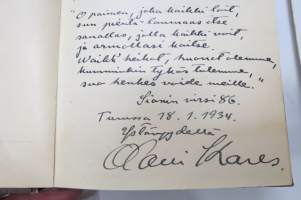 "O paimen, joka kaikki loit,
sun pieni laumaas itse
sanallas, jolla kaikki voit,
ja armollasi kaitse.
Vaikk' heikot, huonot olemme,
kumminkin tykös tulemme,
suo henkes voide meille."
Sionin virsi 86.
Turussa 18.1.1934.
Ystävyydellä
Olavi Kares.